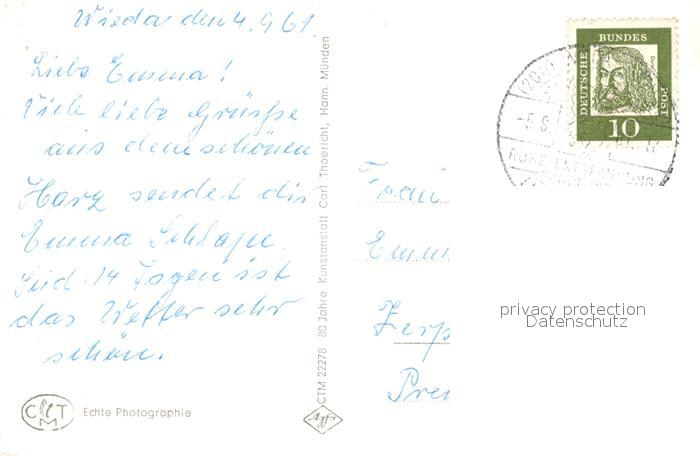 Wieda den 4.9.61.
Liebe Emma!
Viele liebe Grüsse
aus dem schönen
Harz sendet dir
Emma
Seid 14 Tagen ist
das Wetter sehr
schön.
CTM
Echte Photographie
CTM 22278 80 Jahre Kunstanstalt Carl Thoericht, Hann. Münden
Agfa
DEUTSCHE BUNDES POST
10
-5.9.
Frau
Emm
Zerp
Pre
privacy protection
Datenschutz